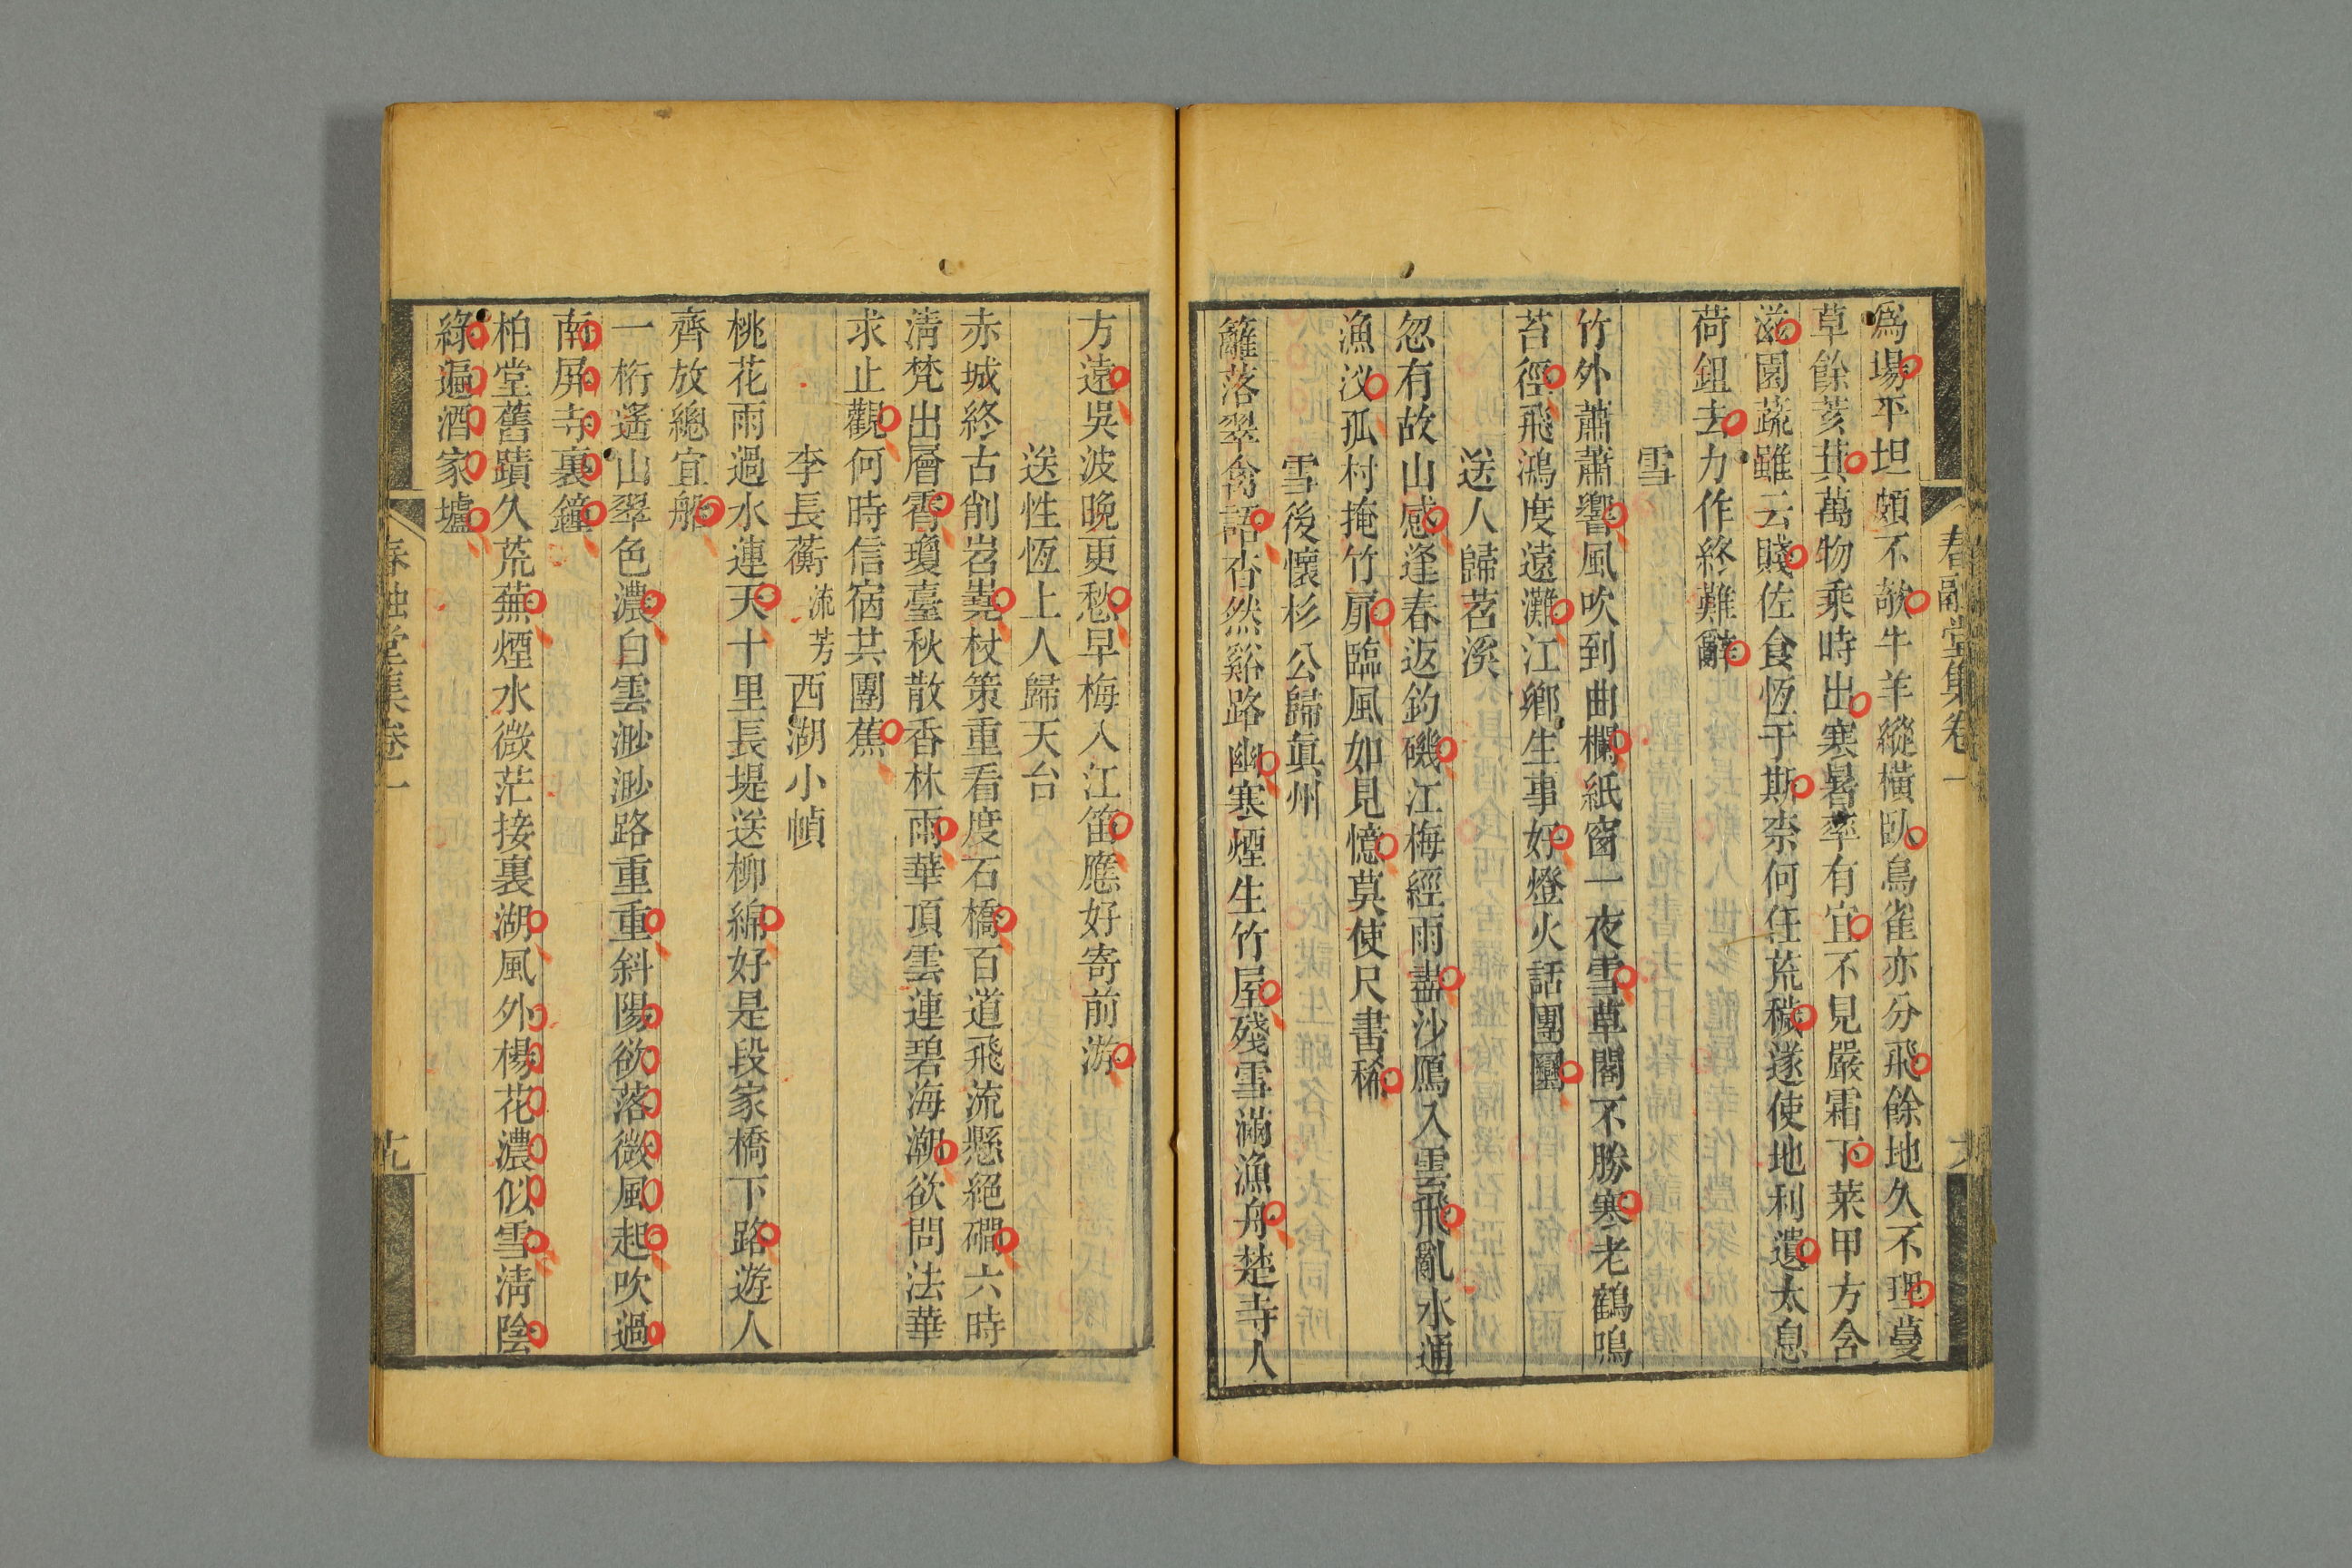 春融堂集卷一
爲場平坦頗不欹牛羊縱橫臥烏雀亦分飛餘地久不理蔓
草餘荄萁萬物乘時出寒暑率有宜不見嚴霜下菜甲方含
滋園蔬雖云賤佐食恆于斯柰何任荒穢遂使地利遺太息
荷鉏去力作終難辭
雪
竹外蕭蕭響風吹到曲欄紙窗一夜雪草閣不勝寒老鶴鳴
苔徑飛鴻度遠灘江鄉生事好燈火話團圞
送人歸苕溪
忽有故山感逢春返釣磯江梅經雨盡沙鴈入雲飛亂水通
漁汊孤村掩竹扉臨風如見憶莫使尺書稀
雪後懷杉公歸眞州
籬落翠禽語杳然谿路幽寒煙生竹屋殘雪滿漁舟楚寺人
方遠吳波晚更愁早梅入江笛應好寄前游
送性恆上人歸天台
赤城終古削岧嶤杖策重看度石橋百道飛流懸絕磵六時
淸梵出層霄瓊臺秋散香林雨華頂雲連碧海潮欲問法華
求止觀何時信宿共團蕉
李長蘅流芳西湖小幀
桃花雨過水連天十里長堤送柳綿好是段家橋下路遊人
齊放總宜船
一桁遙山翠色濃白雲渺渺路重重斜陽欲落微風起吹過
南屏寺裏鐘
柏堂舊蹟久荒蕪煙水微茫接裏湖風外楊花濃似雪淸陰
綠遍酒家壚
春融堂集卷一